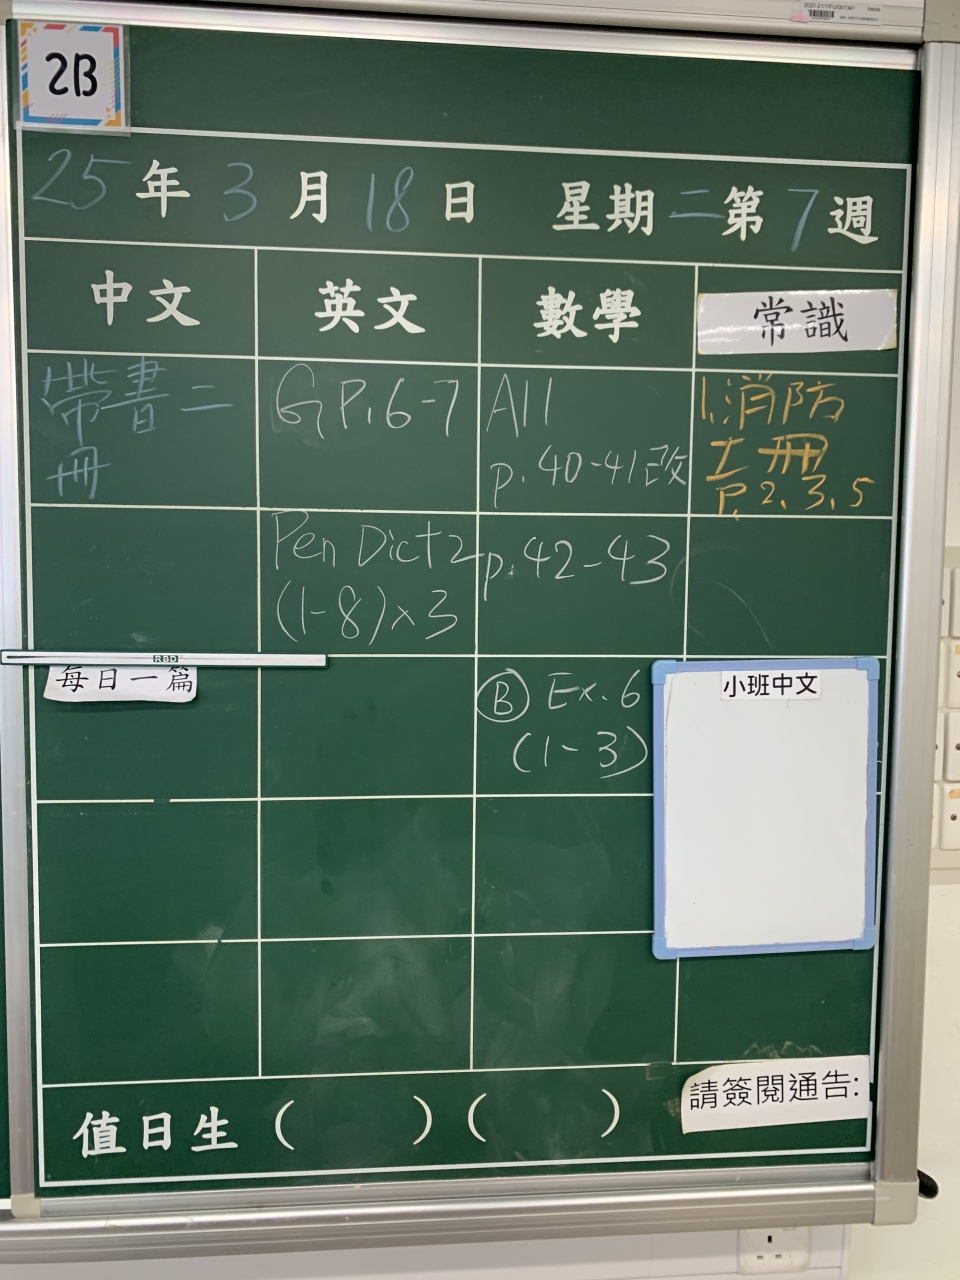 2B
25年3月18日 星期二第7週
中文
英文
數學
常識
帶書二
冊
G P.6-7
All
p.40-41改
1.消防
工冊
P.2、3、5
Pen Dict 2
(1-8)×3
p.42-43
每日一篇
RBD
Ⓑ Ex.6
(1-3)
小班中文
值日生 ( ) ( )
請簽閱通告: